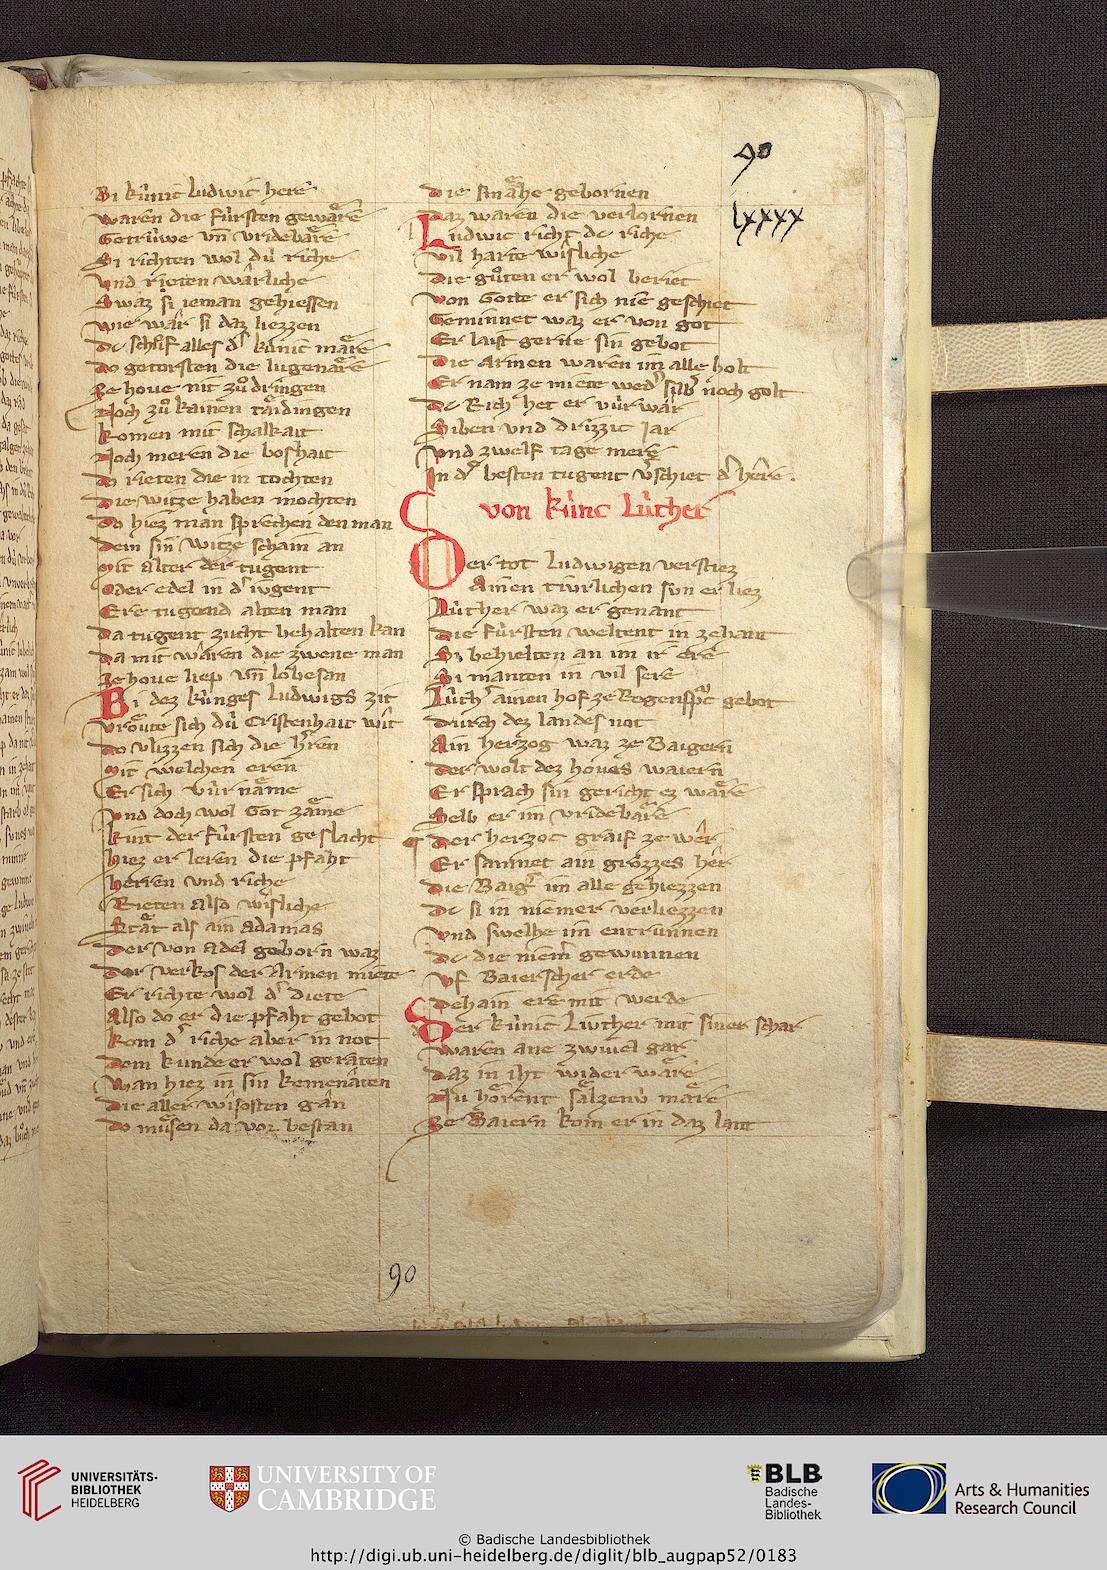 90
lxxxx
Bi kůnic ludwic here
waren die fůrsten gewäre
Getrůwe vn̄ vridebäre
Si richten wol dů riche
vnd rieten wärliche
Swaz si ieman gehiessen
wie wâr si daz liezzen
dc schůf alles dˢ kůnic märe
do getorsten die lugenäre
ze houe nit zů dringen
Noch zů kainen täidingen
komen mit schalkait
Noch meren die boshait
do rieten die in tochten
die witze haben mochten
do hiez man sprechen den man
dem sin witze schain an
Mit alter der tugent
oder edel in dˢ iugent
Ere tugond alten man
da tugent zucht behalten kan
da mit wâren die zwene man
ze houe liep vn̄ lobesan
Bi dez kůnges ludwigs zit
vröute sich dů Cristenhait wit
do vlizzen sich die hˢren
Mit welchen eren
Er sich vůr näme
vnd doch wol Got zäme
kint der fůrsten geslacht
hiez er leren die pfaht
herren vnd riche
Rieten also wisliche
stät als ain adamas
der von adel geborn waz
der verkos der armen miete
Er richte wol dˢ diete
Also do er die pfaht gebot
kom dˢ riche aber in not
dem kunde er wol geraten
Man hiez in sin kemenâten
die aller wisosten gân
do můsen da vor bestan
die smähe gebornen
daz waren die verlornen
Ludwic richt dc riche
vil harte wisliche
die gůten er wol beriet
von Gotte er sich nie geschiet
Geminnet waz er von got
Er laist gerne sin gebot
die Armen waren im alle holt
Er nam ze miete wedˢ silbˢ noch golt
dc Rich het er vůr wâr
Siben vnd drizzic jar
vnd zwelf tage mere
In dˢ besten tugent vˢschiet dˢ hêre.
von kůnc Lůther
Der tot ludwigen verstiez
Ainen tiwrlichen svn er liez
Lůther waz er genant
die fůrsten weltent in zehant
Si behielten an im ir ere
Si manten in vil sere
Lůthˢ ainen hof ze Regenspᵒc gebot
durch dez landes not
Ain herzog waz ze Baigern
der wolt dez houes waiern
Er sprach sin gericht ez wäre
selb er im vridebäre
der herzoc graif ze wêr
Er samnet ain grözzes hêr
die Baigˢ im alle gehiezzen
dc si in niemer verliezzen
vnd swelhe im entrůnnen
dc die niemˢ gewunnen
vf Baierscher erde
dehain ere mit werde
Der kůnic Liwther mit siner schar
waren ane zwiuel gar
daz in iht wider wäre
Nu hörent sälzenů märe
ze Baiern kom er in daz lant
90
UNIVERSITÄTS-
BIBLIOTHEK
HEIDELBERG
UNIVERSITY OF
CAMBRIDGE
BLB
Badische
Landes-
Bibliothek
Arts & Humanities
Research Council
© Badische Landesbibliothek
http://digi.ub.uni-heidelberg.de/diglit/blb_augpap52/0183